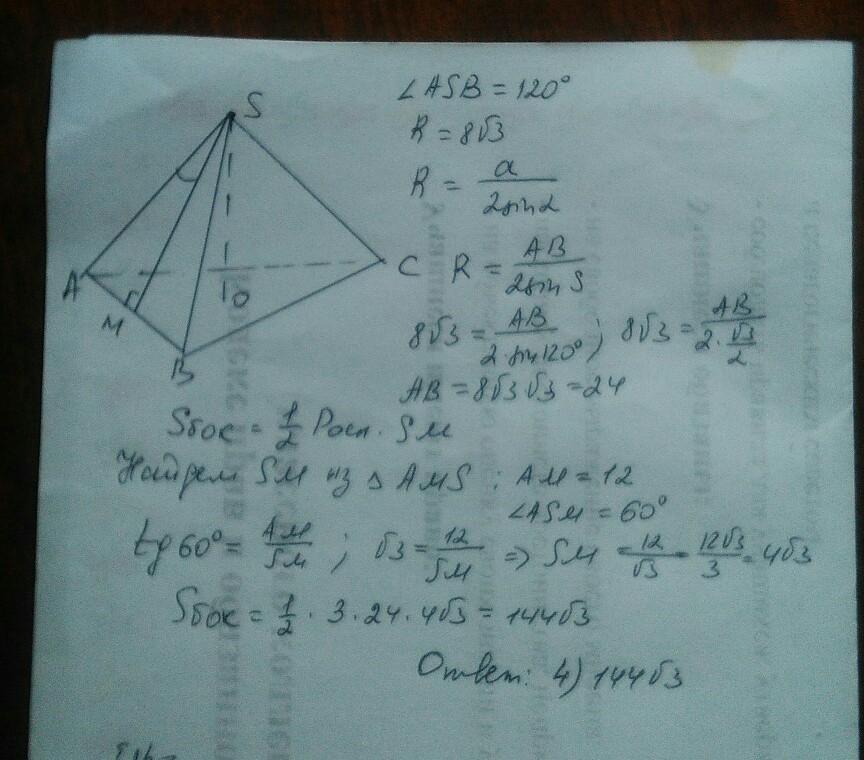 ∠ASB = 120°
R = 8√3
R = a / 2sinα
R = AB / 2sin S
8√3 = AB / 2·sin120° ; 8√3 = AB / 2·√3/2
AB = 8√3·√3 = 24
S
A
M
B
O
C
Sбок = 1/2 Росн. SM
Найдем SM из △ AMS : AM = 12
∠ASM = 60°
tg 60° = AM/SM ; √3 = 12/SM => SM = 12/√3 = 12√3/3 = 4√3
Sбок = 1/2 · 3 · 24 · 4√3 = 144√3
Ответ: 4) 144√3